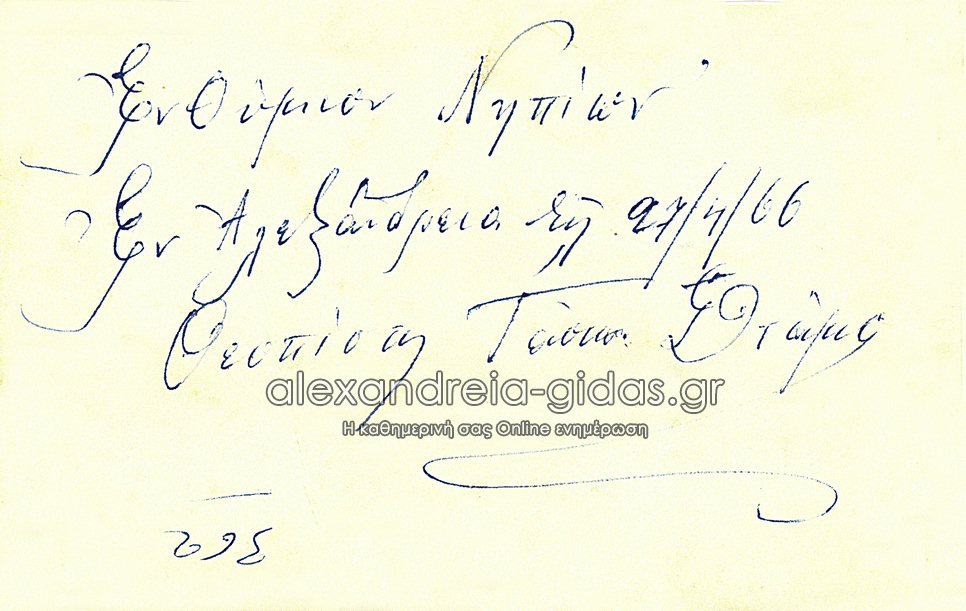 Ενθύμιον Νηπίων
Εν Αλεξάνδρεια τη 27/4/66
Θεοπίστη Τάσιου
alexandreia-gidas.gr
Η καθημερινή σας Online ενημέρωση